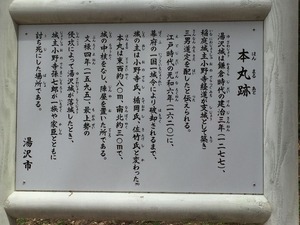 ほん まる あと
本丸跡
湯沢城は鎌倉時代の建治三年(一二七七)、
稲庭城主小野寺経道が支城として築き
三男道定を配したと伝えられる。
江戸時代の元和六年(一六二〇)に、
幕府の一国一城令により破却されるまで、
城の主は小野寺氏、楯岡氏、佐竹氏と変わった。
本丸は東西約八〇m、南北約三〇mで、
城の中枢をなし、陣屋を置いた所である。
文禄四年(一五九五)、最上勢の
侵攻によって湯沢城が落城したとき、
城主小野寺孫七郎が一族や家臣とともに
討ち死にした場所である。
湯沢市